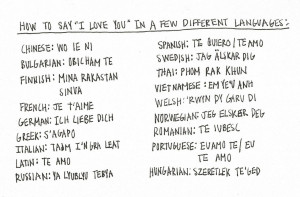 HOW TO SAY "I LOVE YOU" IN A FEW DIFFERENT LANGUAGES:
CHINESE: WO IE NI
BULGARIAN: OBICHAM TE
FINNISH: MINA RAKASTAN
SINVA
FRENCH: JE T'AIME
GERMAN: ICH LIEBE DICH
GREEK: S'AGAPO
ITALIAN: TAIM I'N GRA LEAT
LATIN: TE AMO
RUSSIAN: YA LYUBLYU TEBYA
SPANISH: TE QUIERO/TE AMO
SWEDISH: JAG ÄLSKAR DIG
THAI: PHOM RAK KHUN
VIETNAMESE: EM YEV ANH
WELSH: 'RWYN DY GARU DI
NORWEGIAN: JEG ELSKER DEG
ROMANIAN: TE IUBESC
PORTUGUESE: EU AMO TE/EU
TE AMO
HUNGARIAN: SZERETLEK TE'GED